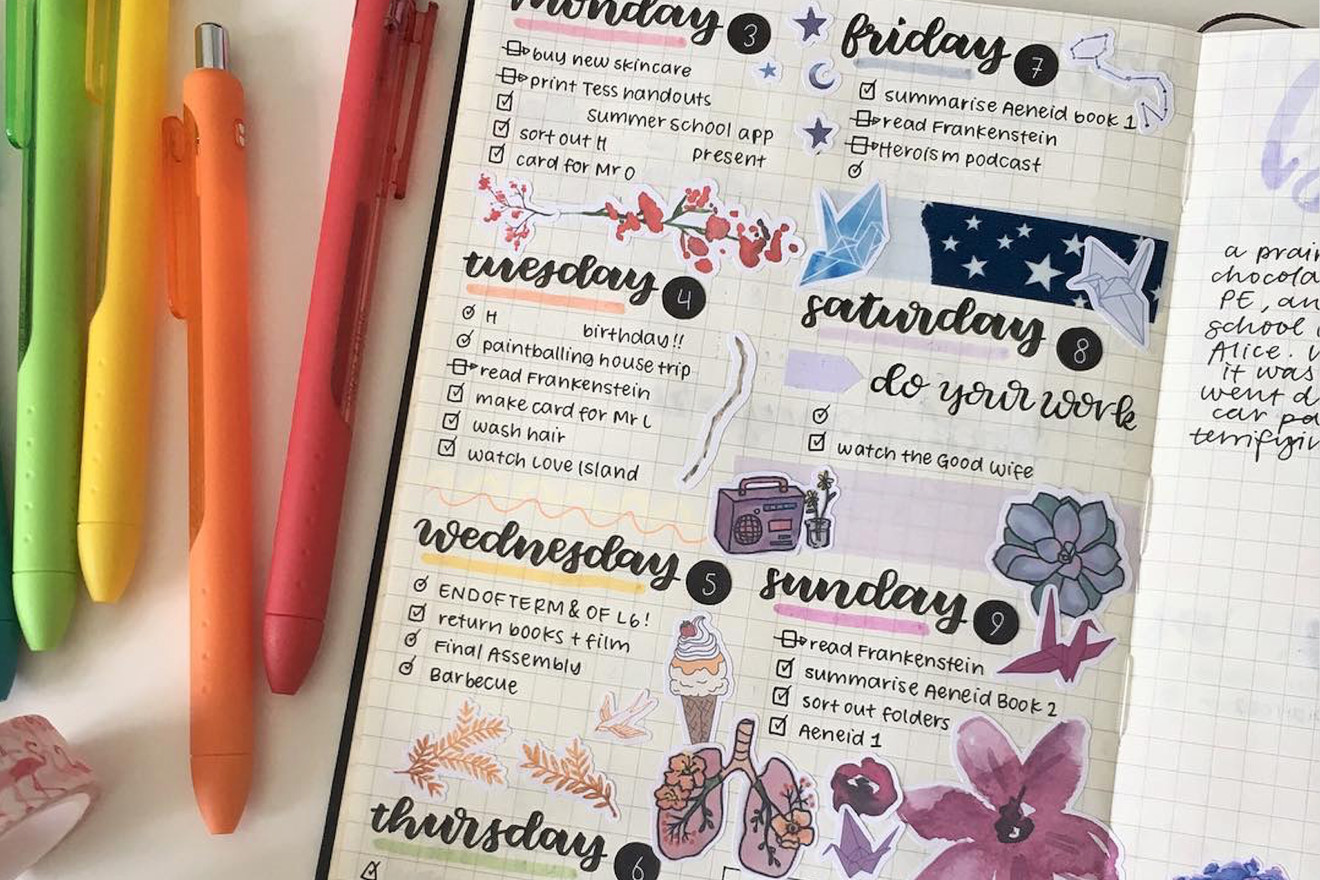 monday 3
buy new skincare
print Tess handouts
summer school app
sort out H present
card for Mr O
tuesday 4
H birthday!!
paintballing house trip
read Frankenstein
make card for Mr L
wash hair
watch Love Island
wednesday 5
END OF TERM & OF L6!
return books + film
Final Assembly
Barbecue
thursday 6
friday 7
summarise Aeneid book 1
read Frankenstein
Heroism podcast
saturday 8
do your work
watch the Good Wife
sunday 9
read Frankenstein
summarise Aeneid Book 2
sort out folders
Aeneid 1
a prain
chocola
PE, an
school
Alice.
it was
went d
car pa
terrifyin